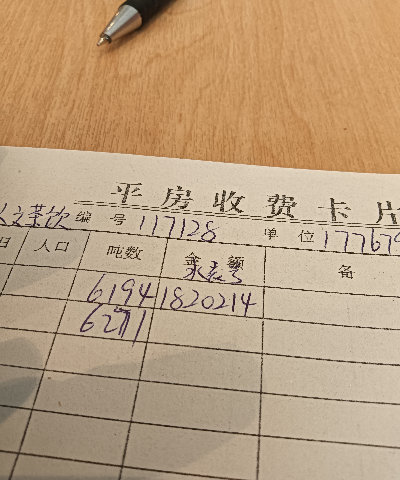 平房收费卡片
文茶饮 编号 117128 单位 177679
日 人口 吨数 金额 备
水表号
6194 1820214
6271